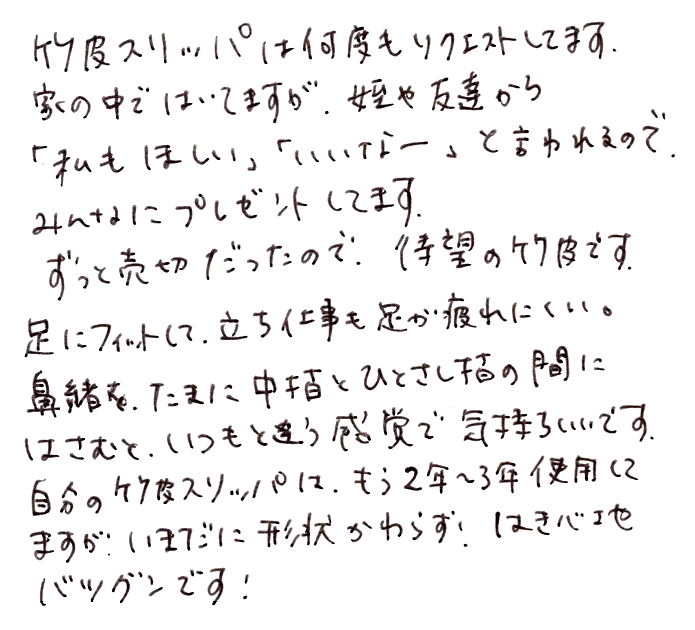 竹皮スリッパは何度もリクエストしてます.
家の中ではいてますが. 姪や友達から
「私もほしい」「いいなー」と言われるので.
みんなにプレゼントしてます.
ずっと売切だったので. 待望の竹皮です.
足にフィットして. 立ち仕事も足が疲れにくい。
鼻緒を. たまに中指とひとさし指の間に
はさむと. いつもと違う感覚で気持ちいいです.
自分の竹皮スリッパは. もう2年～3年使用して
ますが. いまだに形状かわらず! はき心地
バツグンです!